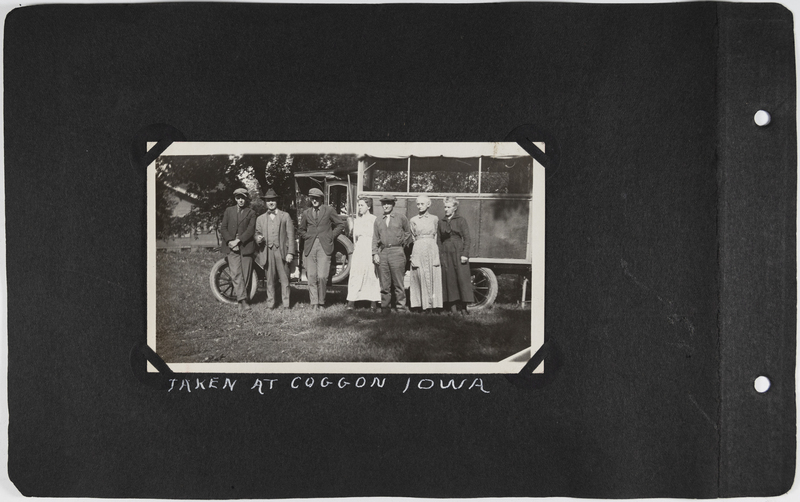 TAKEN AT COGGON IOWA